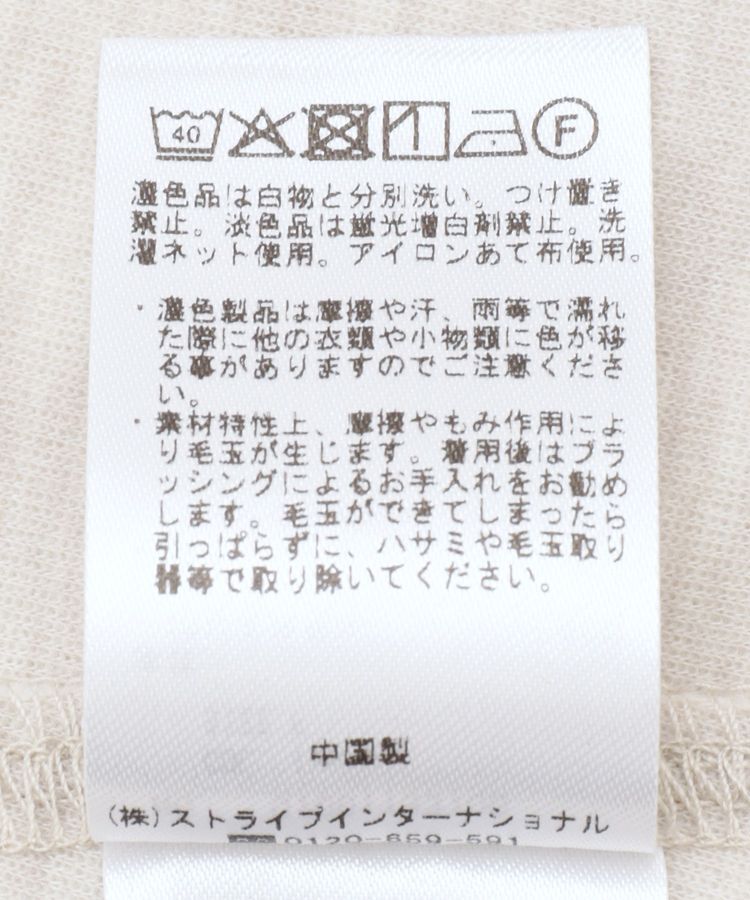 40 F
濃色品は白物と分別洗い。つけ置き
禁止。淡色品は蛍光増白剤禁止。洗
濯ネット使用。アイロンあて布使用。
・濃色製品は摩擦や汗、雨等で濡れ
た際に他の衣類や小物類に色が移
る事がありますのでご注意くださ
い。
・素材特性上、摩擦やもみ作用によ
り毛玉が生じます。着用後はブラ
ッシングによるお手入れをお勧め
します。毛玉ができてしまったら
引っぱらずに、ハサミや毛玉取り
器等で取り除いてください。
中国製
(株)ストライプインターナショナル
0120-659-591